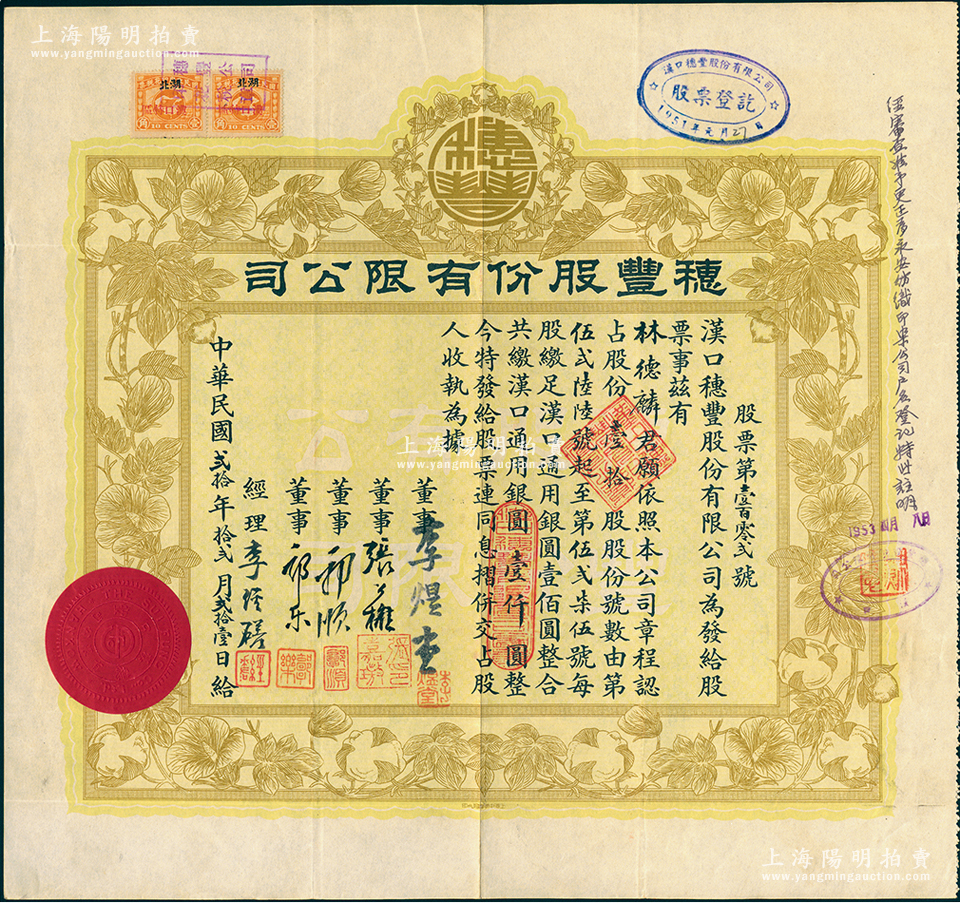 上海陽明拍賣
www.yangmingauction.com
湖北 湖北
漢口 漢口
角 10 CENTS 壹 角 10 CENTS 壹
漢口穗豐股份有限公司
股票登訖
1951年元月27日
穗豐股份有限公司
股票第壹百零弍號
漢口穗豐股份有限公司為發給股
票事茲有
林德麟君願依照本公司章程認
占股份壹拾股股份號數由第
伍弍陸陸號起至第伍弍柒伍號每
股繳足漢口通用銀圓壹佰圓整合
共繳漢口通用銀圓壹仟圓整
今特發給股票連同息摺併交占股
人收執為據
董事 李煜堂
董事 張
董事 郭順
董事 郭乐
經理 李
中華民國弍拾年拾弍月弍拾壹日給
永安紡織印染公司戶名登記特此註明
1953 四月 八日
上海陽明拍賣
www.yangmingauction.com
上海陽明拍賣
www.yangmingauction.com